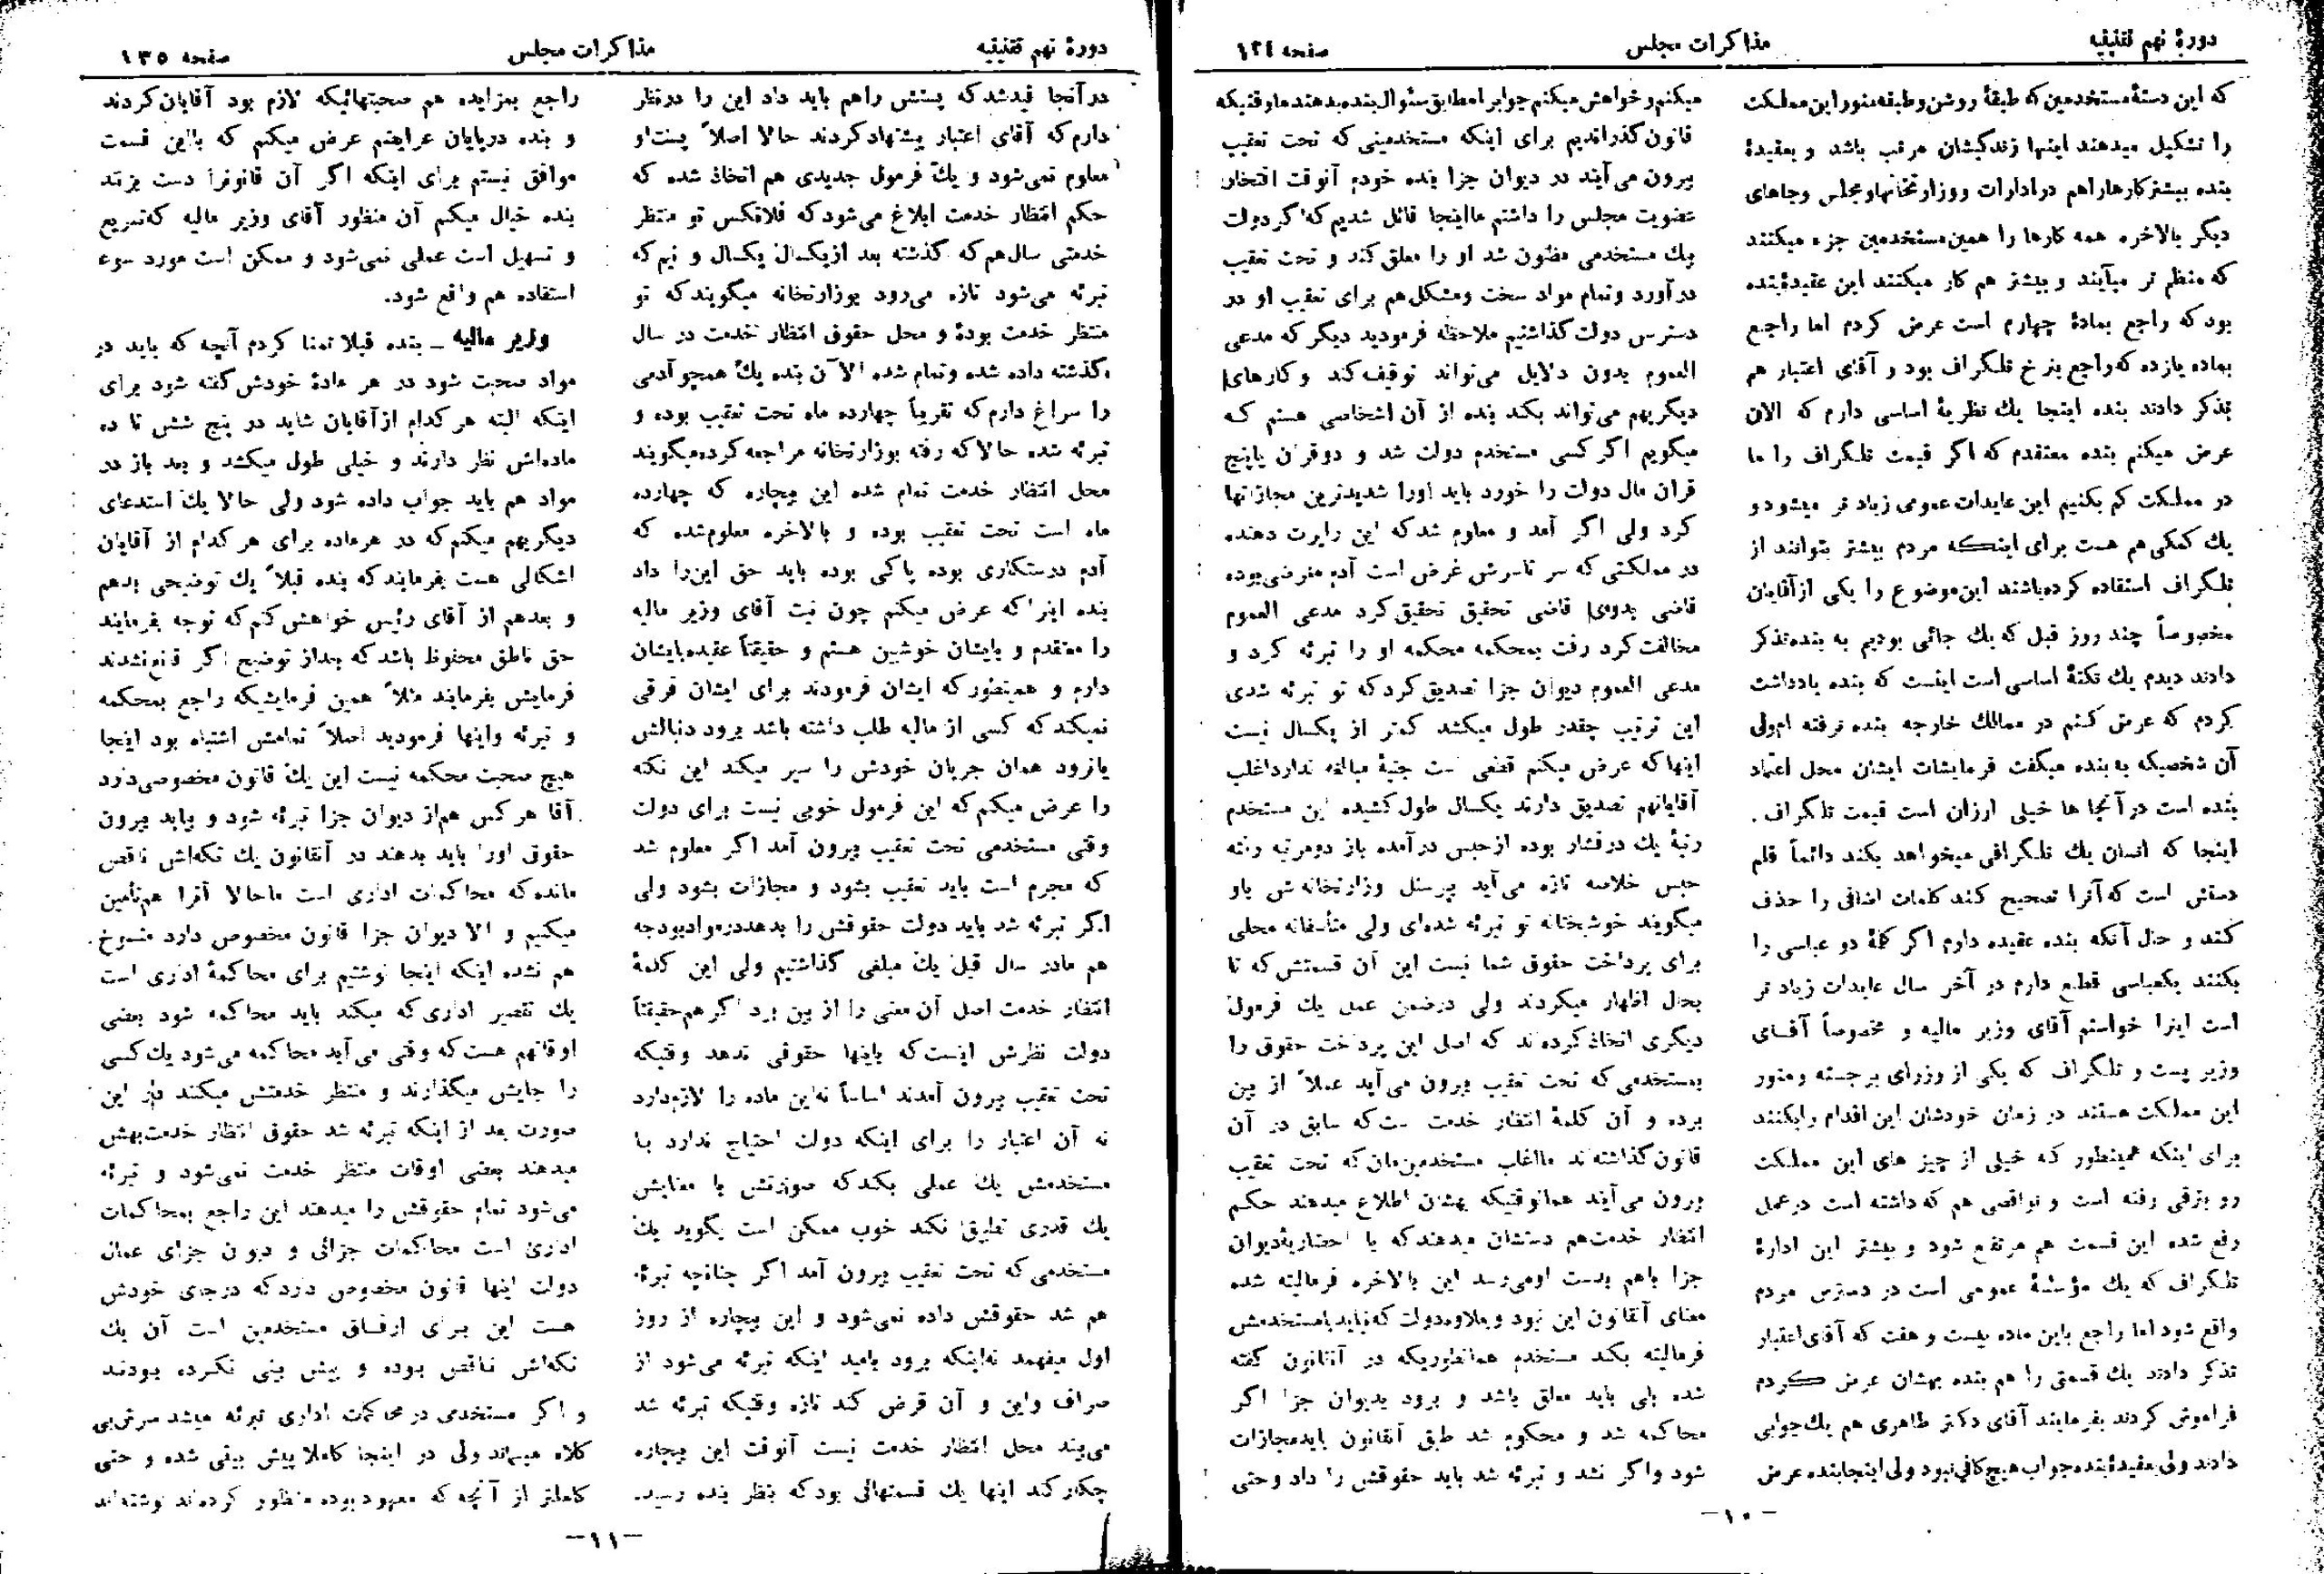 دورهٔ نهم تقنینیه
مذاکرات مجلس
صفحه ۱۳۴
که این دستهٔ مستخدمین که طبقهٔ روشن و طبقه منور این مملکت
را تشکیل میدهند اینها زندگیشان مرتب باشد و بعقیدهٔ
بنده بیشتر کارها را هم در ادارات و وزارتخانهها و مجلس و جاهای
دیگر بالاخره همه کارها را همین مستخدمین جزء میکنند
که منظم تر میآیند و بیشتر هم کار میکنند این عقیدهٔ بنده
بود که راجع بمادهٔ چهارم است عرض کردم اما راجع
بماده یازده که راجع بنرخ تلگراف بود و آقای اعتبار هم
تذکر دادند بنده اینجا یك نظریهٔ اساسی دارم که الان
عرض میکنم بنده معتقدم که اگر قیمت تلگراف را ما
در مملکت کم بکنیم این عایدات عمومی زیاد تر میشود و
یك کمکی هم هست برای اینکه مردم بیشتر بتوانند از
تلگراف استفاده کرده باشند این موضوع را یکی از آقایان
مخصوصاً چند روز قبل که یك جائی بودیم به بنده تذکر
دادند دیدم یك نکتهٔ اساسی است اینست که بنده یادداشت
کردم که عرض کنم در ممالك خارجه بنده نرفته ام ولی
آن شخصیکه به بنده میگفت فرمایشات ایشان محل اعتماد
بنده است در آنجا ها خیلی ارزان است قیمت تلگراف.
اینجا که انسان یك تلگرافی میخواهد بکند دائماً قلم
دستش است که آنرا تصحیح کند کلمات اضافی را حذف
کند و حال آنکه بنده عقیده دارم اگر کلمهٔ دو عباسی را
بکنند یکعباسی قطع دارم در آخر سال عایدات زیاد تر
است اینرا خواستم آقای وزیر مالیه و مخصوصاً آقـای
وزیر پست و تلگراف که یکی از وزرای برجسته و منور
این مملکت هستند در زمان خودشان این اقدام را بکنند
برای اینکه همینطور که خیلی از چیز های این مملکت
رو بترقی رفته است و نواقصی هم که داشته است در عمل
رفع شده این قسمت هم مرتفع شود و بیشتر این ادارهٔ
تلگراف که یك مؤسسهٔ عمومی است در دسترس مردم
واقع شود اما راجع باین ماده بیست و هفت که آقای اعتبار
تذکر دادند یك قسمتی را هم بنده بهشان عرض کردم
فراموش کردند بفرمایند آقای دکتر طاهری هم یك جوابی
دادند ولی بعقیدهٔ بنده جواب هیچ کافی نبود ولی اینجا بنده عرض
میکنم و خواهش میکنم جوابرا مطابق سئوال بنده بدهند ما وقتیکه
قانون گذراندیم برای اینکه مستخدمینی که تحت تعقیب
بیرون می‌آیند در دیوان جزا بنده خودم آنوقت افتخار
عضویت مجلس را داشتم ما اینجا قائل شدیم که اگر دولت
یك مستخدمی مظنون شد او را معلق کند و تحت تعقیب
در آورد و تمام مواد سخت و مشکل هم برای تعقیب او در
دسترس دولت گذاشتیم ملاحظه فرمودید دیگر که مدعی
العموم بدون دلایل می‌تواند توقیف کند و کارهای
دیگر بهم می‌تواند بکند بنده از آن اشخاصی هستم که
میگویم اگر کسی مستخدم دولت شد و دو قران یا پنج
قران مال دولت را خورد باید اورا شدیدترین مجازاتها
کرد ولی اگر آمد و معلوم شد که این راپرت دهنده
در مملکتی که سر تاسرش غرض است آدم مغرضی بوده
قاضی بدوی قاضی تحقیق تحقیق کرد مدعی العموم
مخالفت کرد رفت بمحکمه محکمه او را تبرئه کرد و
مدعی العموم دیوان جزا تصدیق کرد که تو تبرئه شدی
این ترتیب چقدر طول میکشد کمتر از یکسال نیست
اینها که عرض میکنم قطعی است جنبهٔ مبالغه ندارد اغلب
آقایانهم تصدیق دارند یکسال طول کشیده این مستخدم
رتبهٔ یك در فشار بوده از حبس در آمده باز دو مرتبه رفته
حبس خلاصه تازه می‌آید پرسنل وزارتخانه‌ش باو
میگویند خوشبختانه تو تبرئه شده‌ای ولی متأسفانه محلی
برای پرداخت حقوق شما نیست این آن قسمتش که تا
بحال اظهار میکردند ولی در ضمن عمل یك فرمول
دیگری اتخاذ کرده‌اند که اصل این پرداخت حقوق را
بمستخدمی که تحت تعقیب بیرون می‌آید عملاً از بین
برده و آن کلمهٔ انتظار خدمت است که سابق در آن
قانون گذاشته‌اند ما اغلب مستخدمین‌مان که تحت تعقیب
بیرون می‌آیند همانوقتیکه بهشان اطلاع میدهند حکم
انتظار خدمت هم دستشان میدهند که با احضاریهٔ دیوان
جزا باهم بدست او می‌رسد این بالاخره فرمالیته شده
معنای آنقانون این نبود و بعلاوه دولت که نباید با مستخدمش
فرمالیته بکند مستخدم همانطوریکه در آنقانون گفته
شده بلی باید معلق باشد و برود بدیوان جزا اگر
محاکمه شد و محکوم شد طبق آنقانون باید مجازات
شود و اگر نشد و تبرئه شد باید حقوقش را داد و حتی
–۱۰–
دورهٔ نهم تقنینیه
مذاکرات مجلس
صفحه ۱۳۵
در آنجا قید شد که پستش را هم باید داد این را در نظر
دارم که آقای اعتبار پیشنهاد کردند حالا اصلاً پست او
معلوم نمی‌شود و یك فرمول جدیدی هم اتخاذ شده که
حکم انتظار خدمت ابلاغ می‌شود که فلانکس تو منتظر
خدمتی سال هم که گذشته بعد از یکسال یکسال و نیم که
تبرئه می‌شود تازه می‌رود بوزارتخانه میگویند که تو
منتظر خدمت بودهٔ و محل حقوق انتظار خدمت در سال
گذشته داده شده و تمام شده الآن بنده یك همچو آدمی
را سراغ دارم که تقریباً چهارده ماه تحت تعقیب بوده و
تبرئه شده حالا که رفته بوزارتخانه مراجعه کرده میگویند
محل انتظار خدمت تمام شده این بیچاره که چهارده
ماه است تحت تعقیب بوده و بالاخره معلوم شده که
آدم درستکاری بوده پاکی بوده باید حق این را داد
بنده اینرا که عرض میکنم چون نیت آقای وزیر مالیه
را معتقدم و بایشان خوشبین هستم و حقیقتاً عقیده بایشان
دارم و همینطور که ایشان فرمودند برای ایشان فرقی
نمیکند که کسی از مالیه طلب داشته باشد برود دنبالش
یا نرود همان جریان خودش را سیر میکند این نکته
را عرض میکنم که این فرمول خوبی نیست برای دولت
وقتی مستخدمی تحت تعقیب بیرون آمد اگر معلوم شد
که مجرم است باید تعقیب بشود و مجازات بشود ولی
اگر تبرئه شد باید دولت حقوقش را بدهد در مواد بودجه
هم ما در سال قبل یك مبلغی گذاشتیم ولی این کلمهٔ
انتظار خدمت اصل آن معنی را از بین برد اگر هم حقیقتاً
دولت نظرش اینست که باینها حقوقی ندهد وقتیکه
تحت تعقیب بیرون آمدند اساساً نه این ماده را لازم دارد
نه آن اعتبار را برای اینکه دولت احتیاج ندارد با
مستخدمش یك عملی بکند که صورتش با معنایش
یك قدری تطبیق نکند خوب ممکن است بگوید یك
مستخدمی که تحت تعقیب بیرون آمد اگر چنانچه تبرئه
هم شد حقوقش داده نمی‌شود و این بیچاره از روز
اول میفهمد نه اینکه برود بامید اینکه تبرئه می‌شود از
صراف و این و آن قرض کند تازه وقتیکه تبرئه شد
می‌بیند محل انتظار خدمت نیست آنوقت این بیچاره
چکار کند اینها یك قسمتهائی بود که بنظر بنده رسید.
راجع بمزایده هم صحبتهائیکه لازم بود آقایان کردند
و بنده در پایان عرایضم عرض میکنم که بااین قسمت
موافق نیستم برای اینکه اگر آن قانونرا دست بزنند
بنده خیال میکنم آن منظور آقای وزیر مالیه که تسریع
و تسهیل است عملی نمی‌شود و ممکن است مورد سوء
استفاده هم واقع شود.
وزیر مالیه – بنده قبلا تمنا کردم آنچه که باید در
مواد صحبت شود در هر مادهٔ خودش گفته شود برای
اینکه البته هر کدام از آقایان شاید در پنج شش تا ده
ماده‌اش نظر دارند و خیلی طول میکشد و بعد باز در
مواد هم باید جواب داده شود ولی حالا یك استدعای
دیگر بهم میکنم که در هر ماده برای هر کدام از آقایان
اشکالی هست بفرمایند که بنده قبلاً یك توضیحی بدهم
و بعد هم از آقای رئیس خواهش کنم که توجه بفرمایند
حق ناطق محفوظ باشد که بعد از توضیح اگر قانع نشدند
فرمایش بفرمایند مثلاً همین فرمایشیکه راجع بمحکمه
و تبرئه و اینها فرمودید اصلاً تمامش اشتباه بود اینجا
هیچ صحبت محکمه نیست این یك قانون مخصوصی دارد
آقا هر کس هم از دیوان جزا تبرئه شود و بیاید بیرون
حقوق اورا باید بدهند در آنقانون یك تکه‌اش ناقص
مانده که محاکمات اداری است ما حالا آنرا هم تأمین
میکنیم و الا دیوان جزا قانون مخصوص دارد منسوخ
هم نشده اینکه اینجا نوشتیم برای محاکمهٔ اداری است
یك تقصیر اداری که میکند باید محاکمه شود بعضی
اوقاتهم هست که وقتی می‌آید محاکمه می‌شود یك کسی
را جایش میگذارند و منتظر خدمتش میکنند در این
صورت بعد از اینکه تبرئه شد حقوق انتظار خدمت بهش
میدهند بعضی اوقات منتظر خدمت نمی‌شود و تبرئه
می‌شود تمام حقوقش را میدهند این راجع بمحاکمات
اداری است محاکمات جزائی و دیوان جزای عمال
دولت اینها قانون مخصوص دارد که در جای خودش
هست این برای ارفاق مستخدمین است آن یك
تکه‌اش ناقص بوده و پیش بینی نکرده بودند
و اگر مستخدمی در محاکمات اداری تبرئه میشد سرش بی
کلاه میماند ولی در اینجا کاملا پیش بینی شده و حتی
کاملتر از آنچه که معهود بوده منظور کرده‌اند نوشته‌اند
–۱۱–